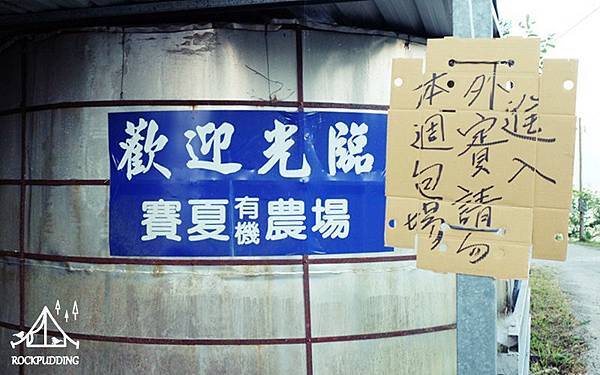 歡迎光臨
賽夏有機農場
本週包場
外賓請勿
進入
ROCKPUDDING